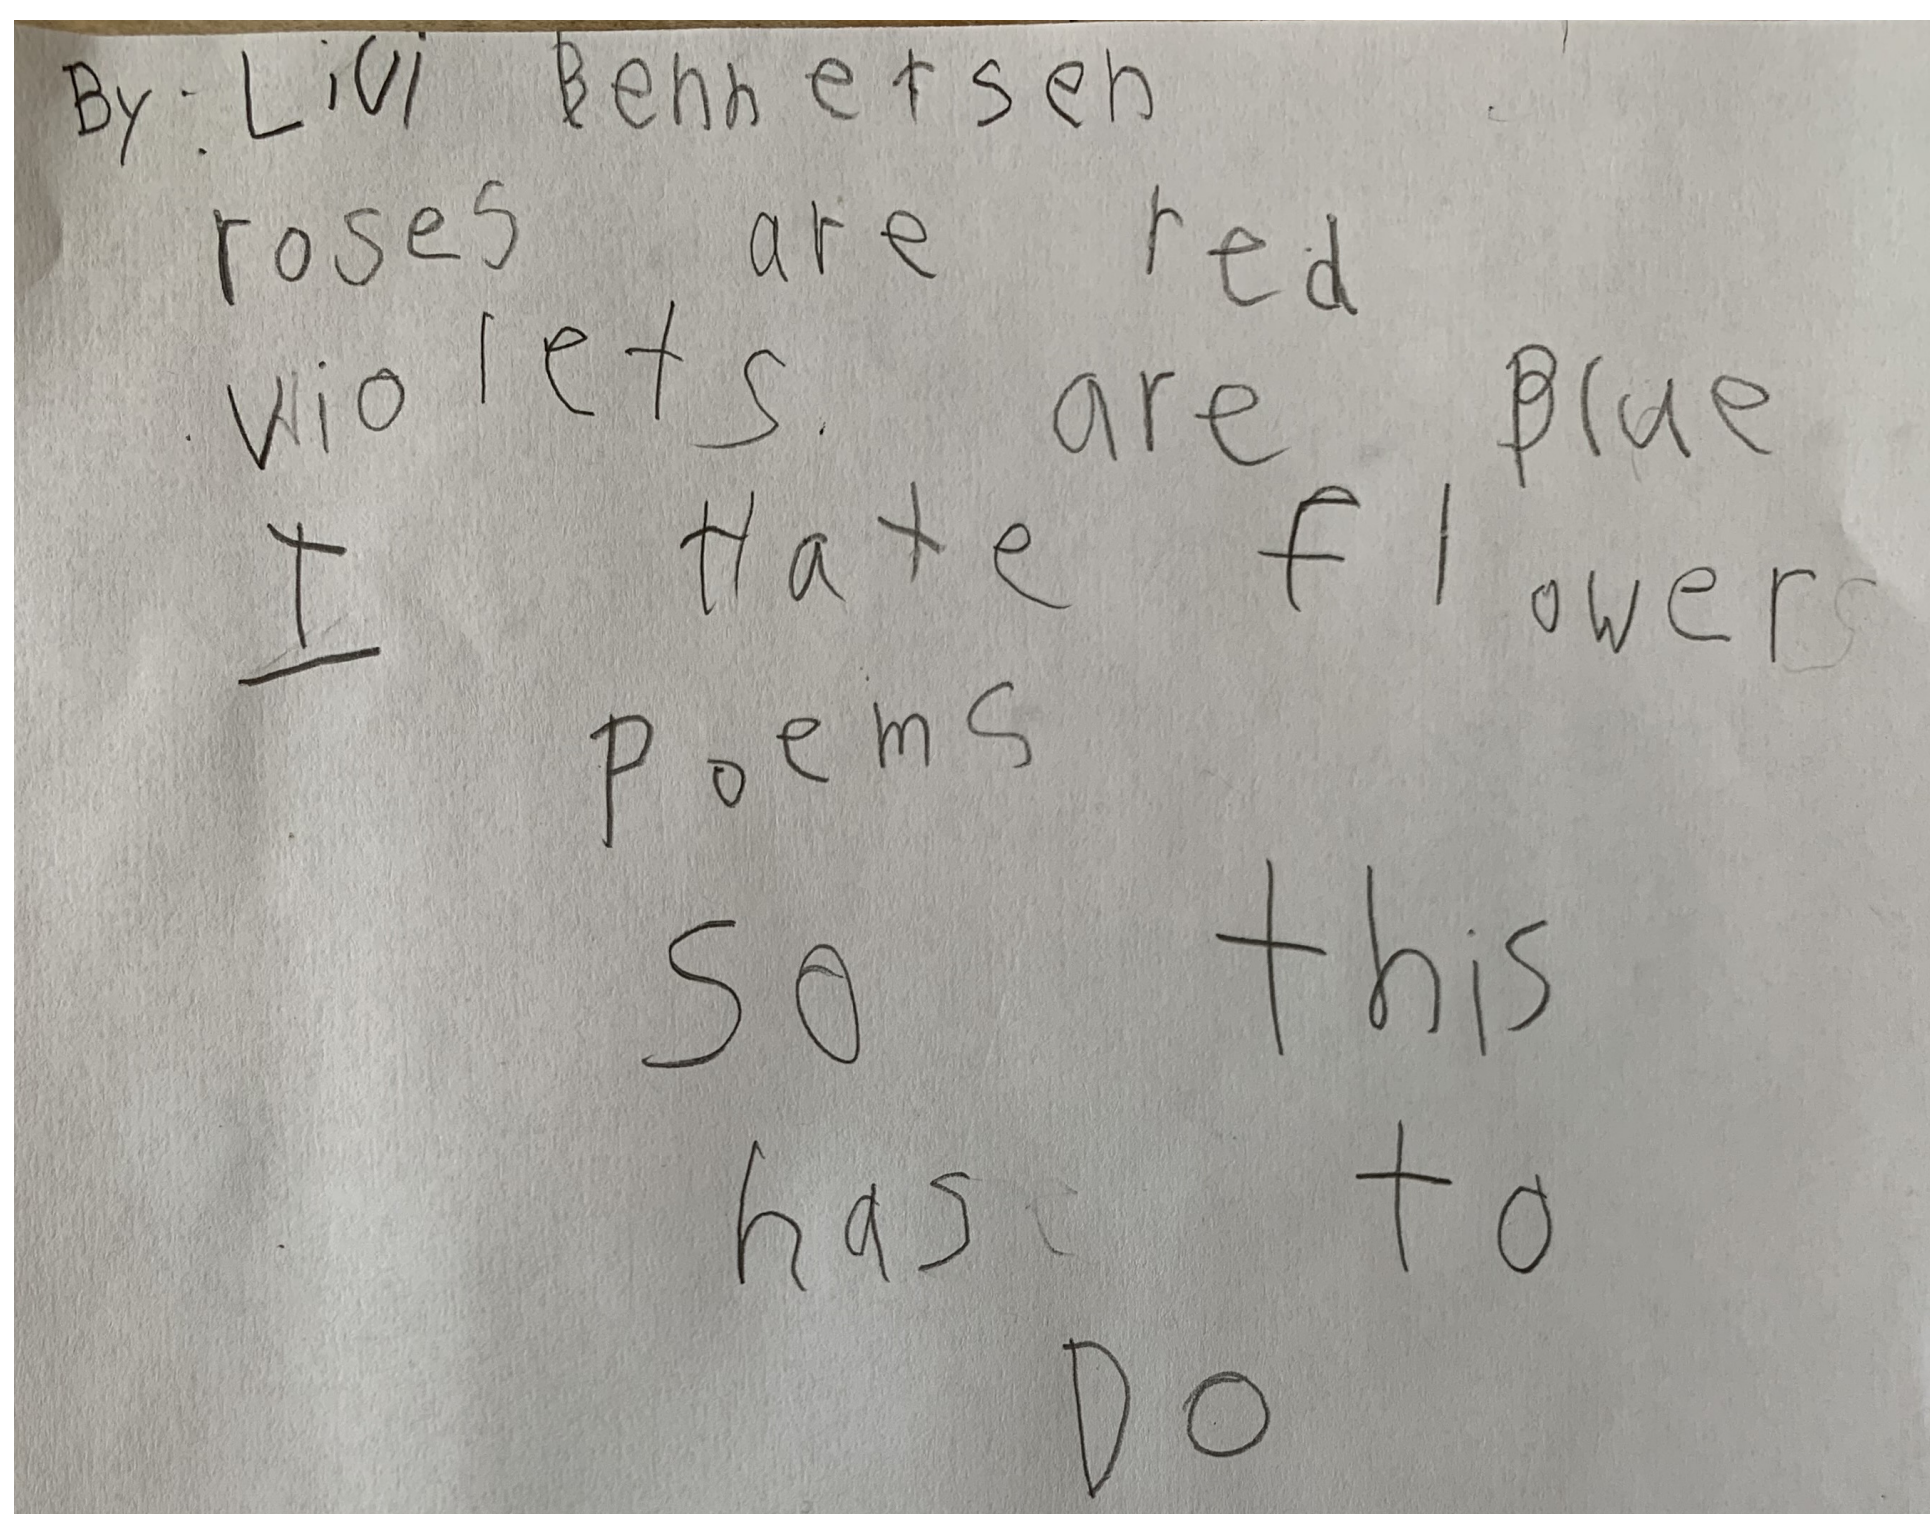 By: Livi Bennersen
roses are red
violets are Blue
I Hate flowers
poems
so this
has to
DO